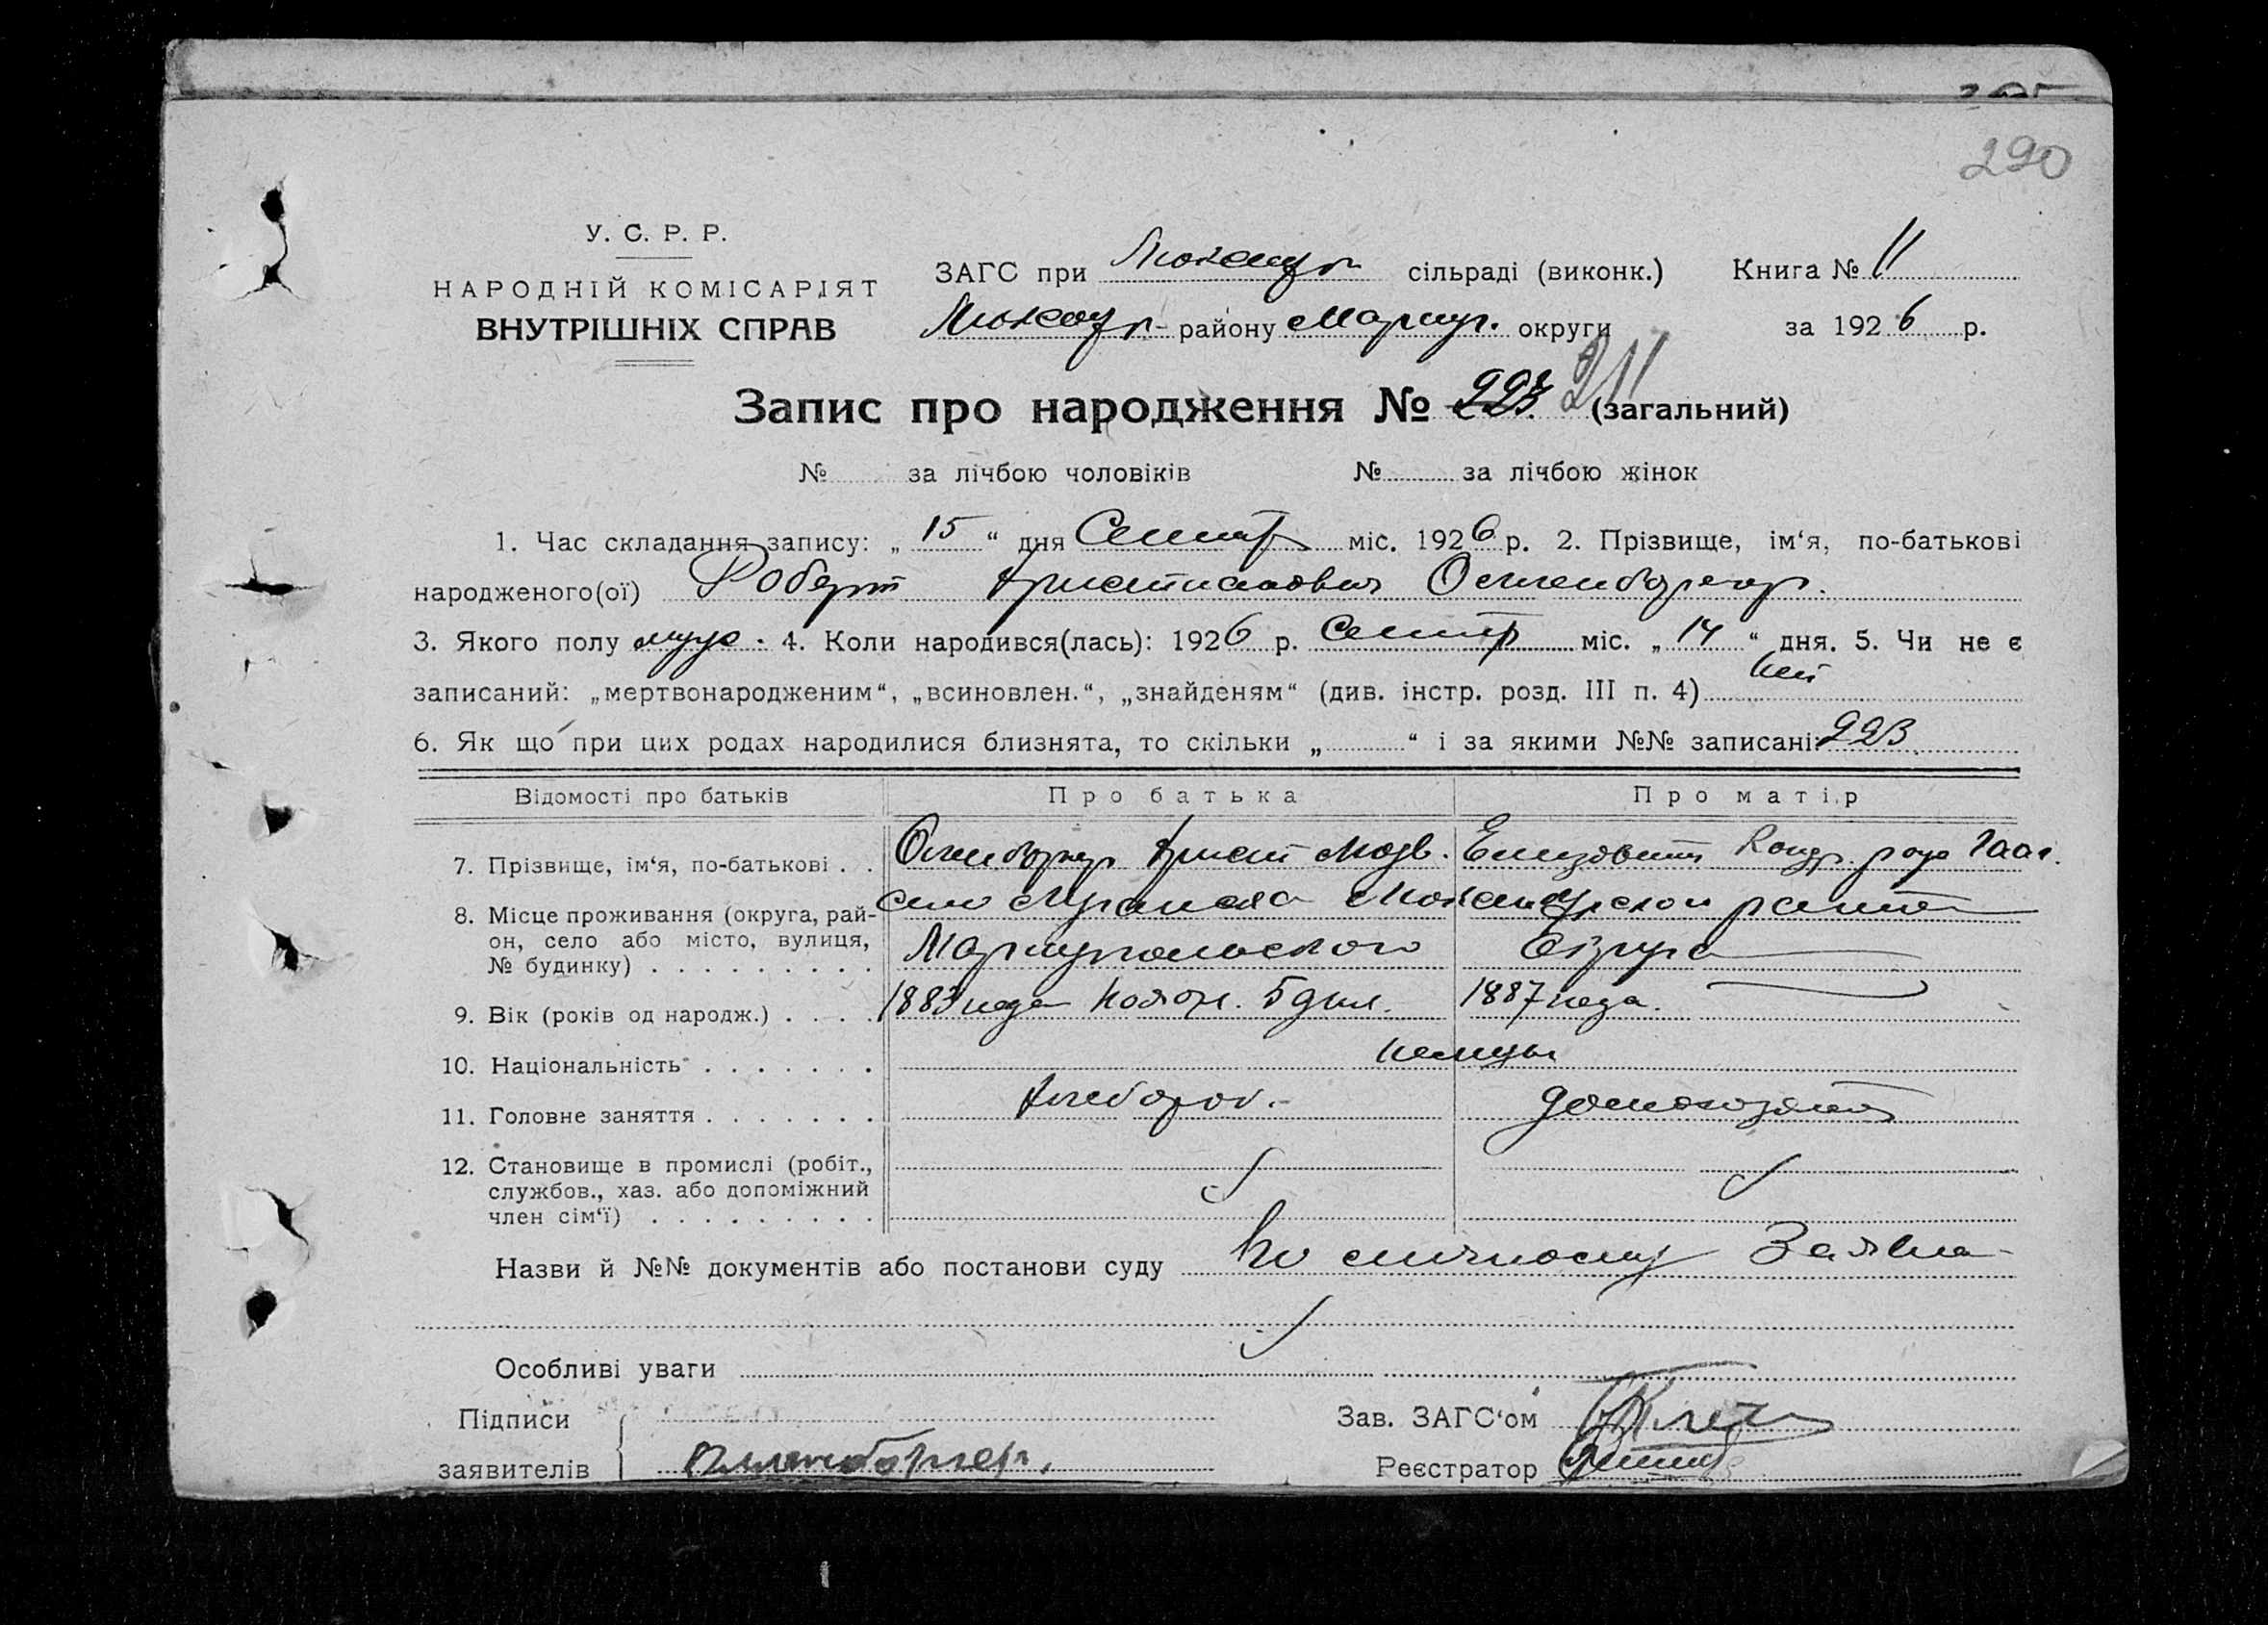 290
У. С. Р. Р.
НАРОДНІЙ КОМІСАРІЯТ
ВНУТРІШНІХ СПРАВ
ЗАГС при сільраді (виконк.) Книга № 11
району Мариуп. округи за 1926 р.
Запис про народження № 223 211 (загальний)
№ за лічбою чоловіків № за лічбою жінок
1. Час складання запису: „15“ дня Сентяр міс. 1926 р. 2. Прізвище, ім‘я, по-батькові
народженого(ої) Роберт Християнович
3. Якого полу муж. 4. Коли народився(лась): 1926 р. Сентяр міс. „14“ дня. 5. Чи не є
записаний: „мертвонародженим“, „всиновлен.“, „знайденям“ (див. інстр. розд. III п. 4) нет
6. Як що при цих родах народилися близнята, то скільки „ “ і за якими №№ записані: 223
Відомості про батьків Про батька Про матір
7. Прізвище, ім‘я, по-батькові . . Христ Людв. Елизавета Кондр. рожд Гааг.
8. Місце проживання (округа, рай- село
он, село або місто, вулиця, Мариупольского Округа
№ будинку) . . . . . . . . .
9. Вік (років од народж.) . . . . 1883 года Нояб. 5 дня. 1887 года.
10. Національність . . . . . . . немцы
11. Головне заняття . . . . . . . хлебороб. домохозяйка
12. Становище в промислі (робіт.,
службов., хаз. або допоміжний
член сім‘ї) . . . . . . . . .
Назви й №№ документів або постанови суду По личному Заявл
Особливі уваги
Підписи Зав. ЗАГС‘ом
заявителів Реєстратор